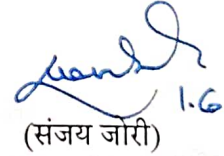 1.6
(संजय जोरी)